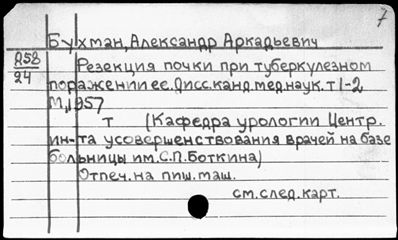 7
Бухман, Александр Аркадьевич
Д58
24
Резекция почки при туберкулезном
поражении ее. Дисс. канд. мед. наук. т 1-2
М., 1957
т (Кафедра урологии Центр.
ин-та усовершенствования врачей на базе
больницы им. С.П. Боткина)
Отпеч. на пиш. маш.
см. след. карт.